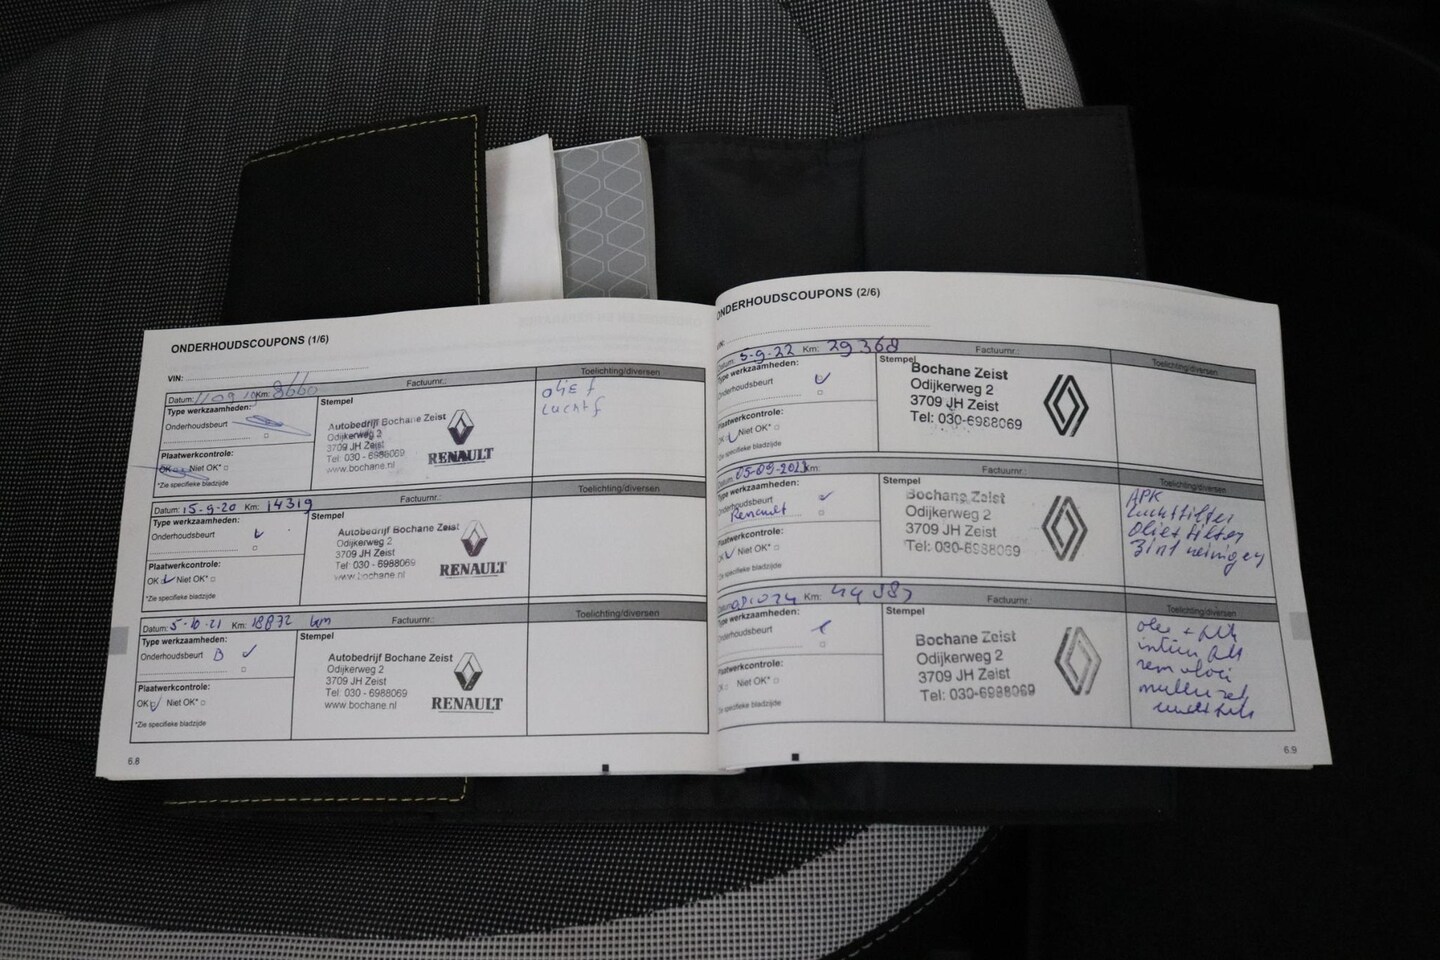 ONDERHOUDSCOUPONS (1/6)
VIN:
Datum: Km: 8660 Factuurnr.: Toelichting/diversen
Type werkzaamheden:
Onderhoudsbeurt
Plaatwerkcontrole:
OK Niet OK*
*Zie specifieke bladzijde
Stempel
Autobedrijf Bochane Zeist
Odijkerweg 2
3709 JH Zeist
Tel: 030 - 6988069
www.bochane.nl
RENAULT
olief
luchtf
Datum: 15-9-20 Km: 14319 Factuurnr.: Toelichting/diversen
Type werkzaamheden:
Onderhoudsbeurt
Plaatwerkcontrole:
OK Niet OK*
*Zie specifieke bladzijde
Stempel
Autobedrijf Bochane Zeist
Odijkerweg 2
3709 JH Zeist
Tel. 030 - 6988069
www.bochane.nl
RENAULT
Datum: 5-10-21 Km: 18872 km Factuurnr.: Toelichting/diversen
Type werkzaamheden:
Onderhoudsbeurt B
Plaatwerkcontrole:
OK Niet OK*
*Zie specifieke bladzijde
Stempel
Autobedrijf Bochane Zeist
Odijkerweg 2
3709 JH Zeist
Tel. 030 - 6988069
www.bochane.nl
RENAULT
6.8
ONDERHOUDSCOUPONS (2/6)
Datum: 5-9-22 Km: 29368 Factuurnr.: Toelichting/diversen
Type werkzaamheden:
Onderhoudsbeurt
Plaatwerkcontrole:
OK Niet OK*
*Zie specifieke bladzijde
Stempel
Bochane Zeist
Odijkerweg 2
3709 JH Zeist
Tel: 030-6988069
Datum: 05-09-2023 Km: Factuurnr.: Toelichting/diversen
Type werkzaamheden:
Onderhoudsbeurt
Renault
Plaatwerkcontrole:
OK Niet OK*
*Zie specifieke bladzijde
Stempel
Bochane Zeist
Odijkerweg 2
3709 JH Zeist
Tel: 030-6988069
APK
Luchtfilter
Oliefilter
3 in 1 reinigen
Datum: Km: Factuurnr.: Toelichting/diversen
Type werkzaamheden:
Onderhoudsbeurt
Plaatwerkcontrole:
OK Niet OK*
*Zie specifieke bladzijde
Stempel
Bochane Zeist
Odijkerweg 2
3709 JH Zeist
Tel: 030-6988069
olie +
6.9